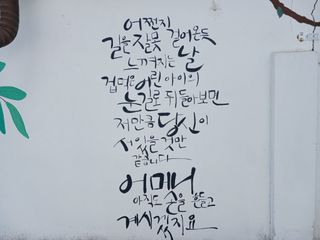 어쩐지
길을 잘못 걸어온듯
느껴지는 날
겁먹은 어린 아이의
눈길로 뒤돌아보면
저만큼 당신이
서있을 것만
같습니다
어머니
아직도 손을 흔들고
계시겠지요